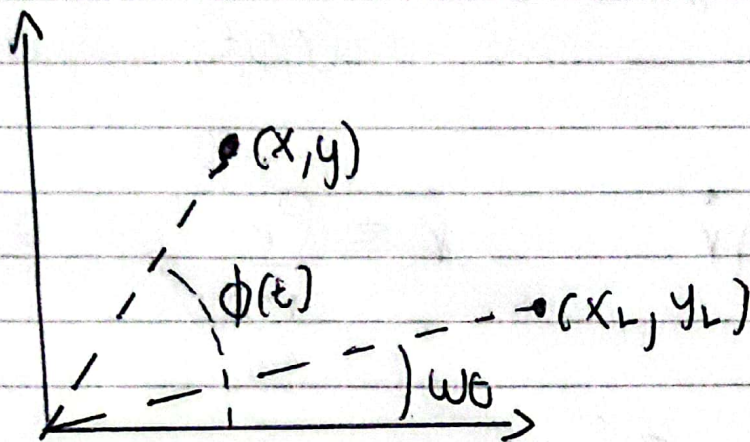 (x,y)
ϕ(t)
(x_L, y_L)
ωt